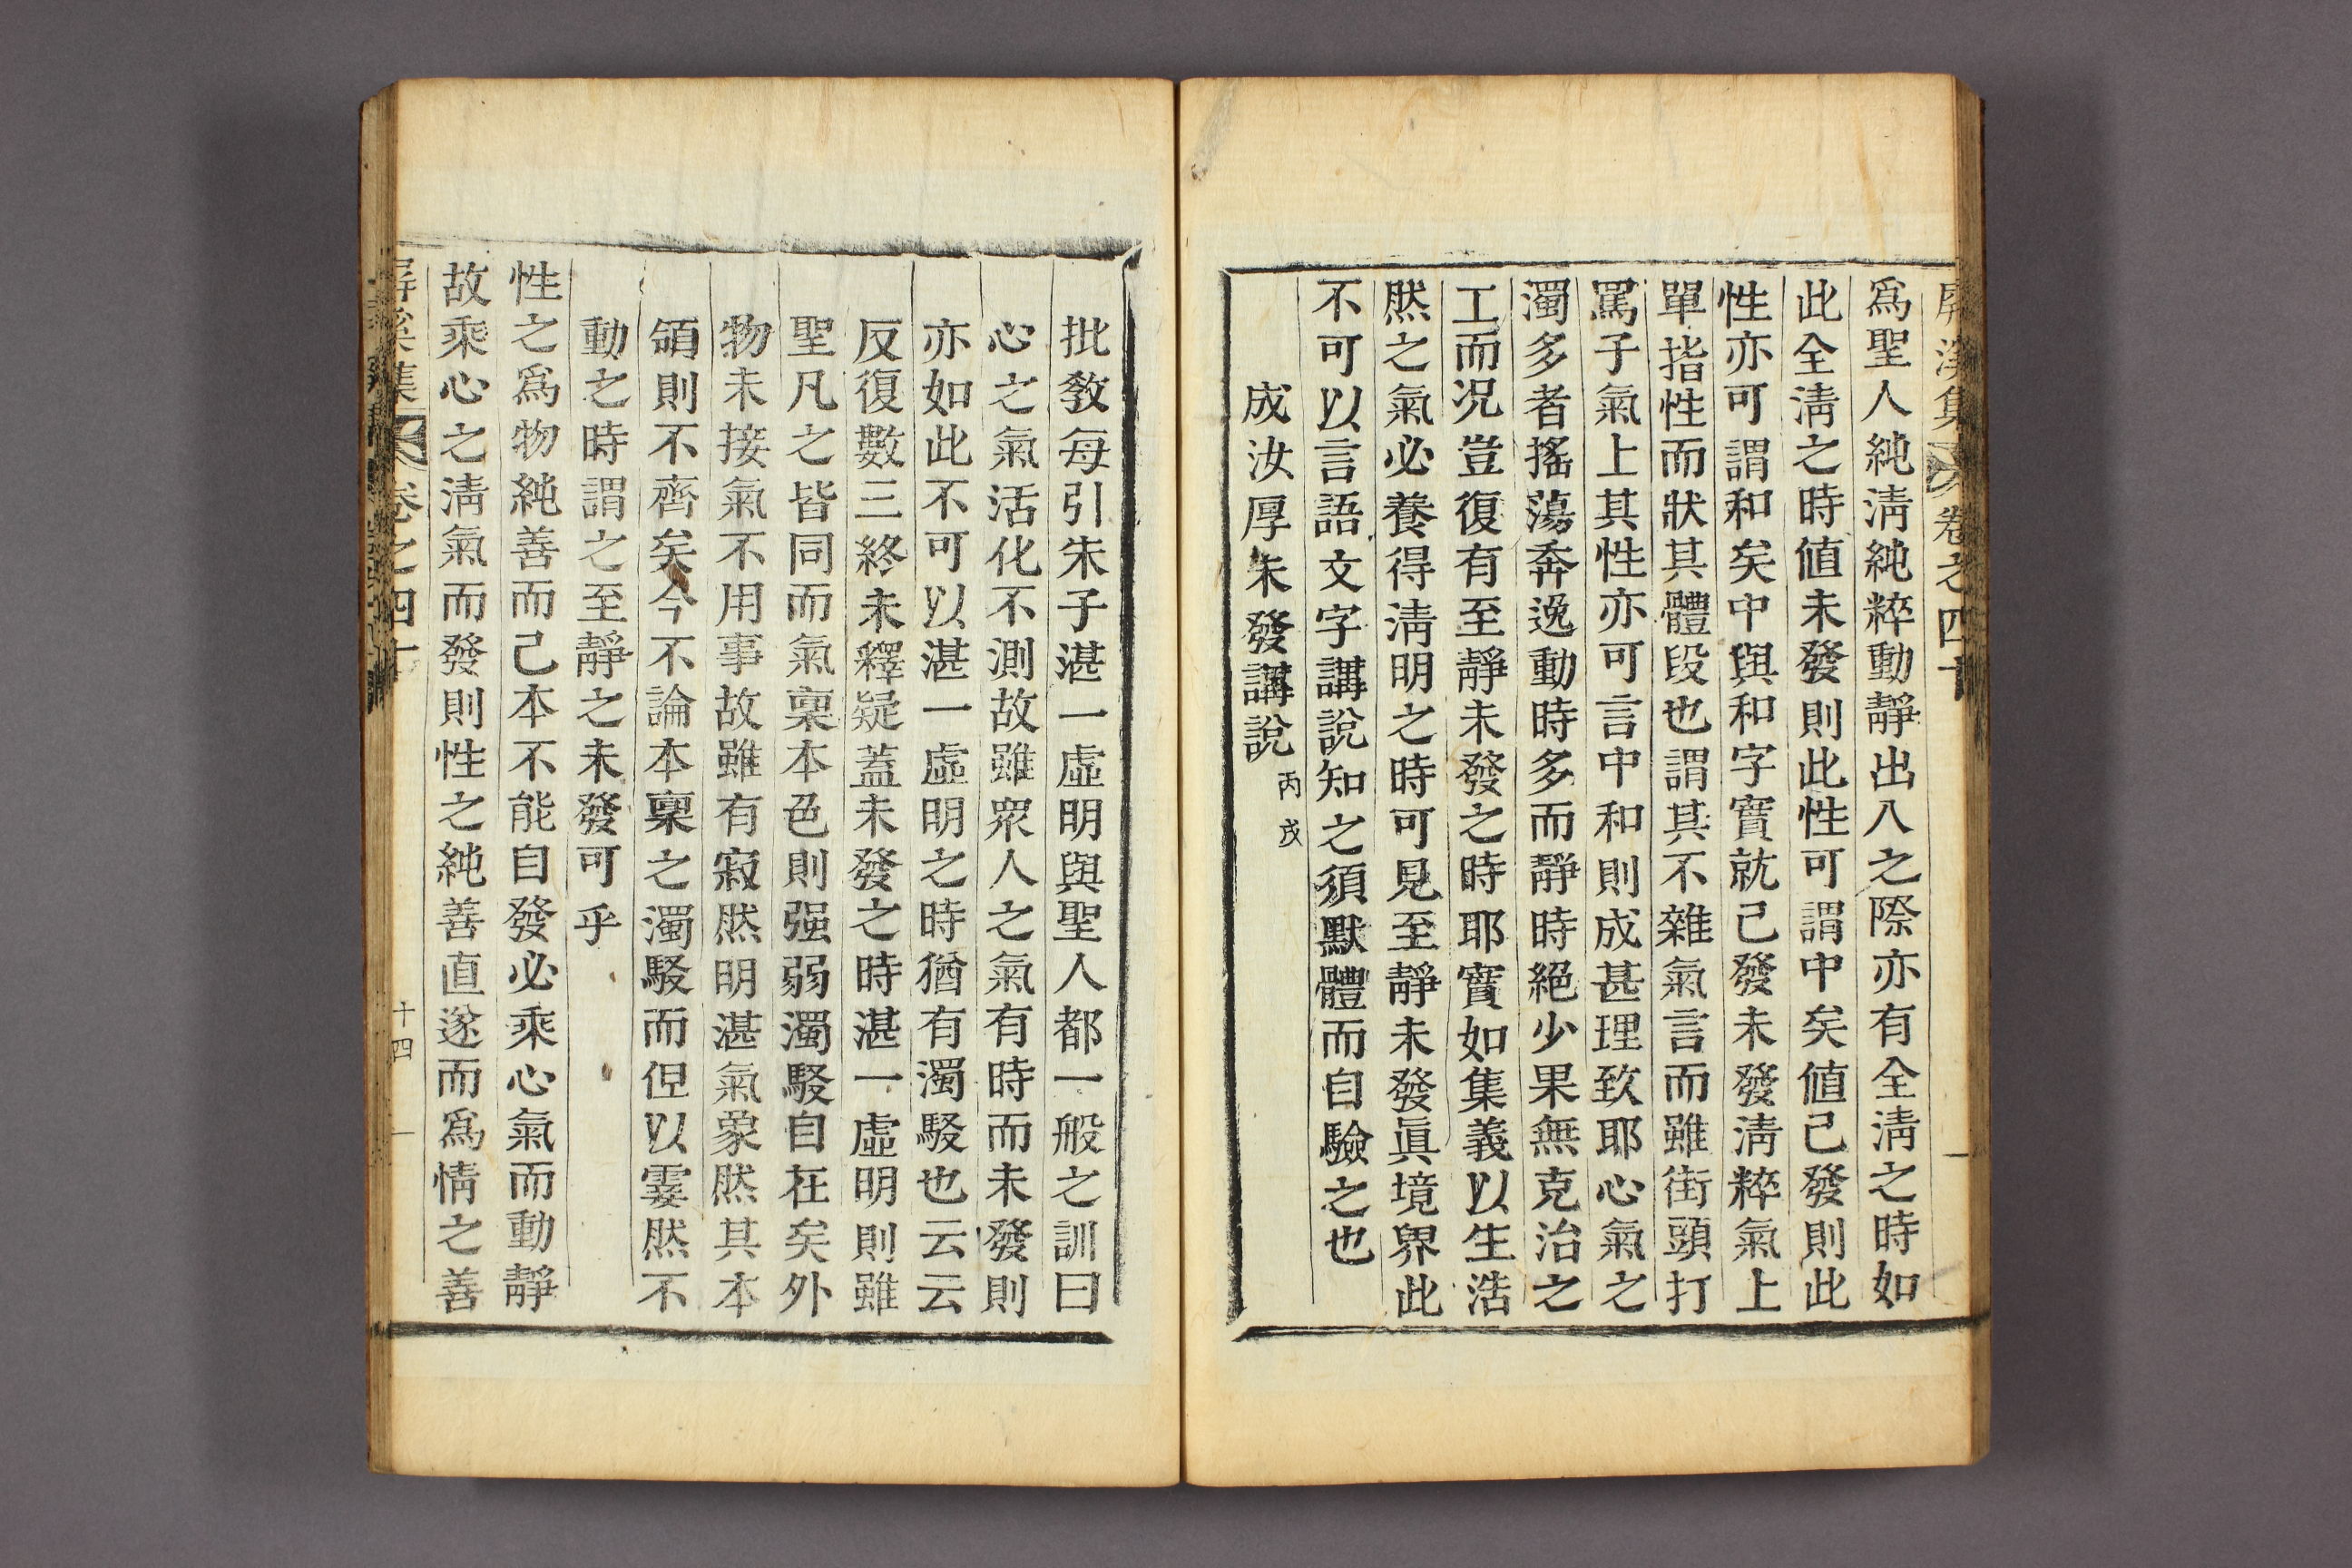 屛溪集 卷之四十
爲聖人純淸純粹動靜出入之際亦有全淸之時如
此全淸之時値未發則此性可謂中矣値已發則此
性亦可謂和矣中與和字實就已發未發淸粹氣上
單指性而狀其體段也謂其不雜氣言而雖街頭打
罵子氣上其性亦可言中和則成甚理致耶心氣之
濁多者搖蕩奔逸動時多而靜時絕少果無克治之
工而况豈復有至靜未發之時耶實如集義以生浩
然之氣必養得淸明之時可見至靜未發眞境界此
不可以言語文字講說知之須默體而自驗之也
成汝厚未發講說 丙戌
批敎每引朱子湛一虛明與聖人都一般之訓曰
心之氣活化不測故雖衆人之氣有時而未發則
亦如此不可以湛一虛明之時猶有濁駁也云云
反復數三終未釋疑蓋未發之時湛一虛明則雖
聖凡之皆同而氣稟本色則强弱濁駁自在矣外
物未接氣不用事故雖有寂然明湛氣象然其本
領則不齊矣今不論本稟之濁駁而但以霎然不
動之時謂之至靜之未發可乎
性之爲物純善而已本不能自發必乘心氣而動靜
故乘心之淸氣而發則性之純善直遂而爲情之善
屛溪集 卷之四十 十四